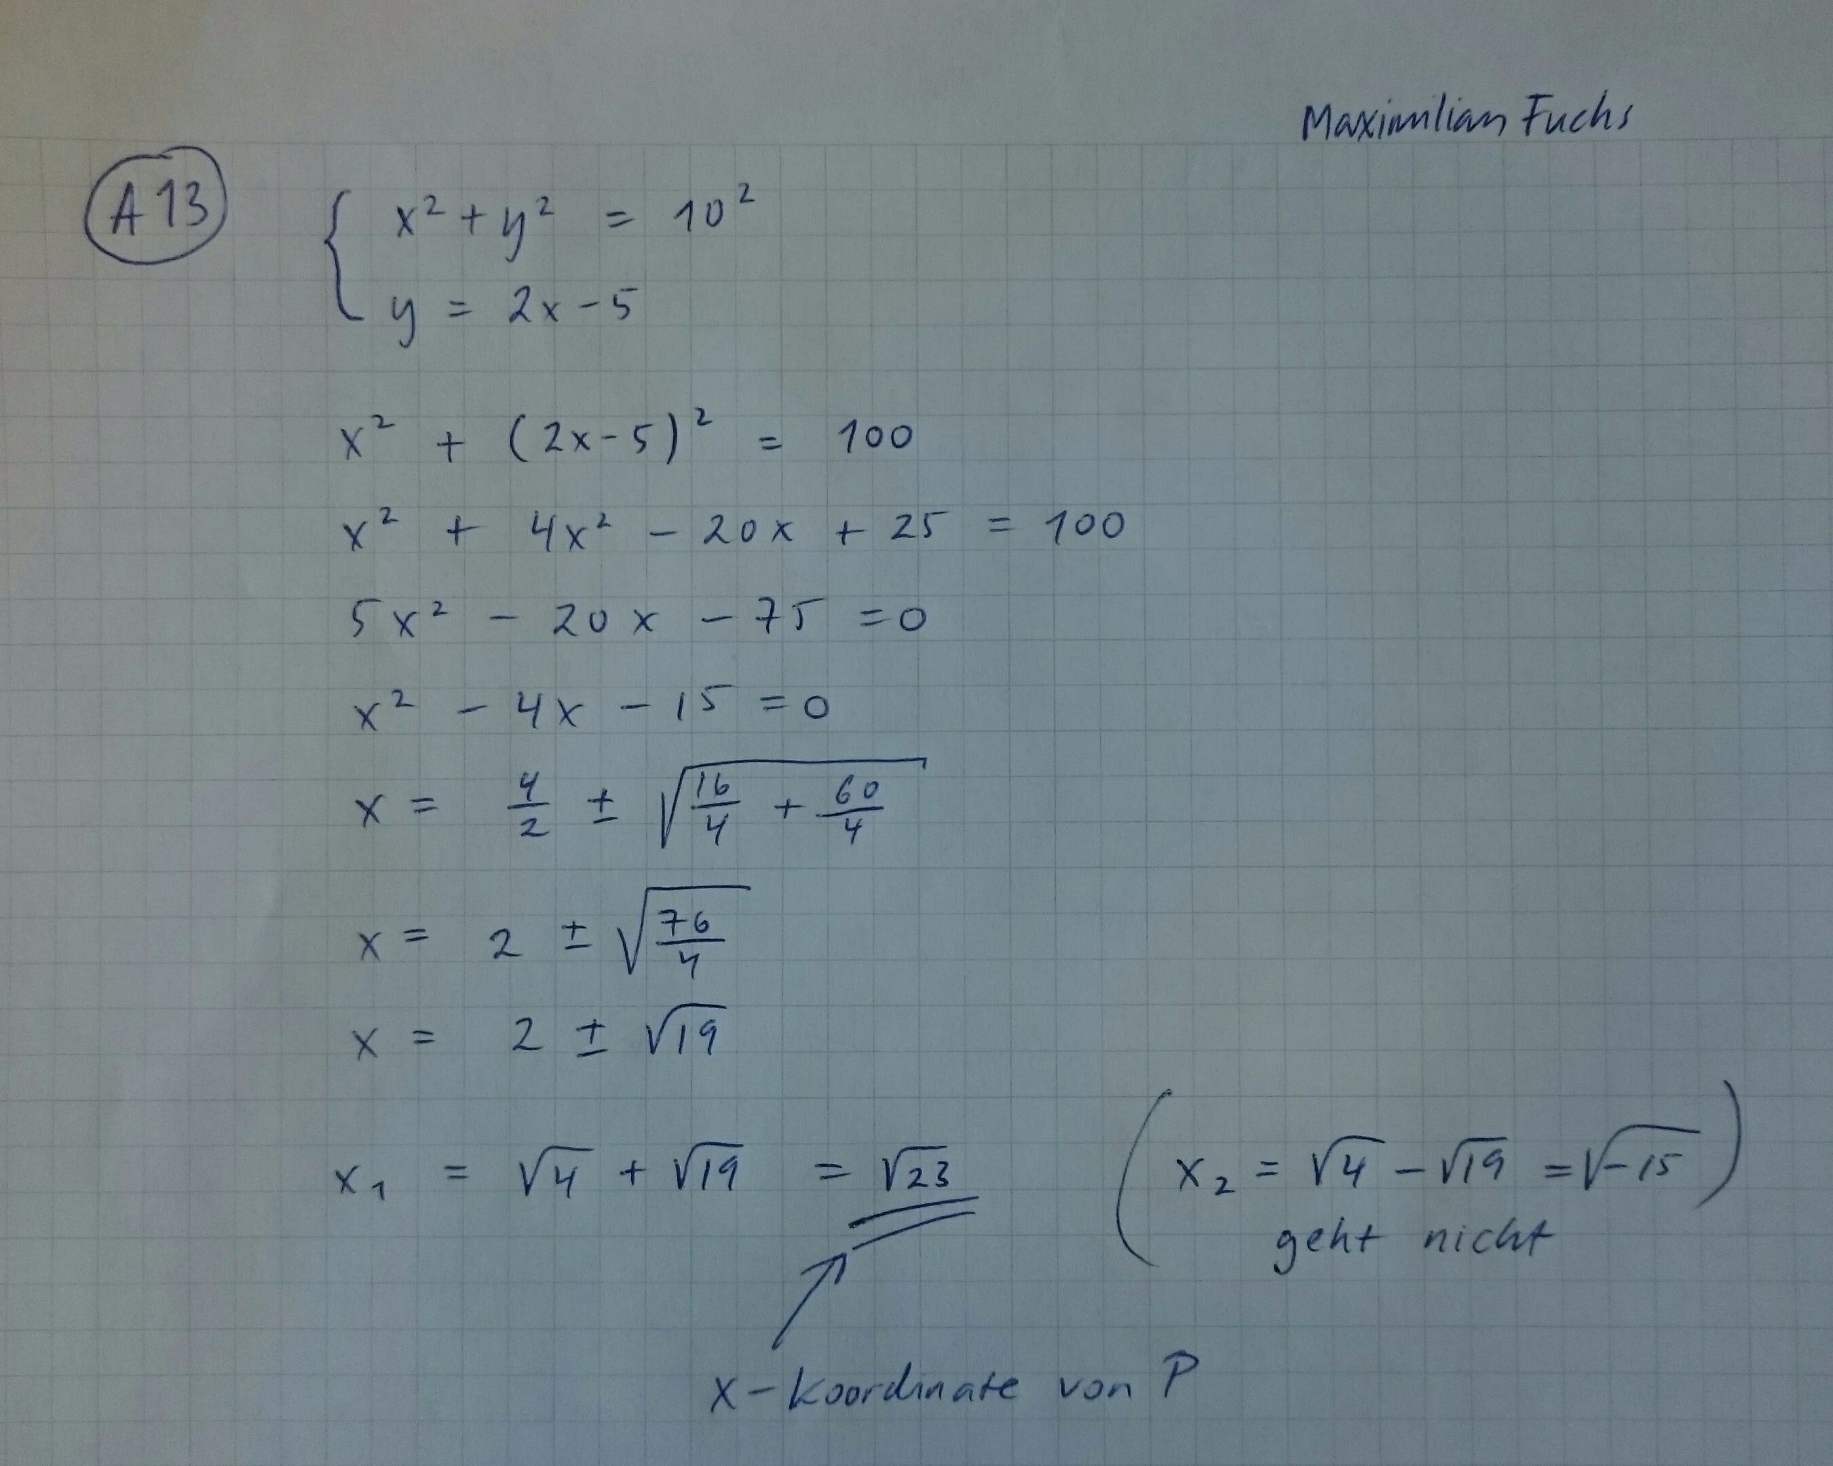 Maximilian Fuchs
A13
{ x² + y² = 10²
y = 2x - 5
x² + (2x-5)² = 100
x² + 4x² - 20x + 25 = 100
5x² - 20x - 75 = 0
x² - 4x - 15 = 0
x = 4/2 ± √(16/4 + 60/4)
x = 2 ± √(76/4)
x = 2 ± √19
x₁ = √4 + √19 = √23 (x₂ = √4 - √19 = √-15)
geht nicht
x-Koordinate von P